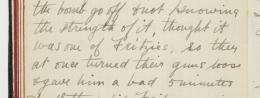 the bomb go off & not knowing
the strength of it, thought it
was one of Fritzies, so they
at once turned their guns loose
& gave him a bad 5 minutes